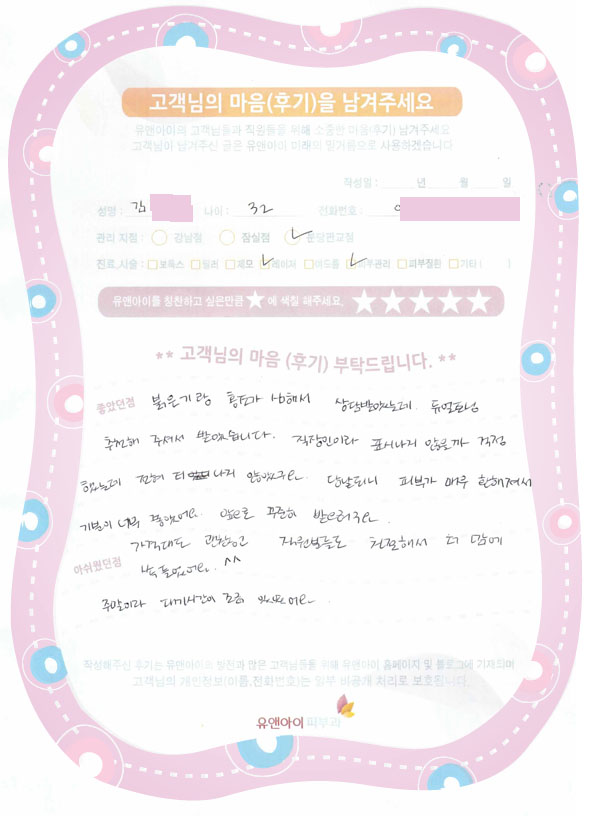 고객님의 마음(후기)을 남겨주세요
유앤아이의 고객님들과 직원들을 위해 소중한 마음(후기) 남겨주세요
고객님이 남겨주신 글은 유앤아이 미래의 밑거름으로 사용하겠습니다
작성일 : 년 월 일
성명 : 김 나이 : 32 전화번호 : 0
관리 지점 : 강남점 잠실점 문정판교점
진료, 시술 : 보톡스 필러 제모 레이저 여드름 피부관리 피부질환 기타 ( )
유앤아이를 칭찬하고 싶은만큼 ★ 에 색칠 해주세요. ★★★★★
** 고객님의 마음 (후기) 부탁드립니다. **
좋았던점 붉은기랑 홍조가 심해서 상담받았는데 듀얼토닝
추천해 주셔서 받았습니다. 직장인이라 표시나지 않을까 걱정
했는데 전혀 티 나지 않았구요 당날되니 피부가 매우 환해져서
기분이 너무 좋았어요. 앞으로 꾸준히 받으려구요
가격대도 괜찮고 직원분들도 친절해서 더 맘에
아쉬웠던점 쏙 들었어요. ^^
주말이라 대기시간이 조금 있었어요
작성해주신 후기는 유앤아이의 발전과 많은 고객님들을 위해 유앤아이 홈페이지 및 블로그에 기재되며
고객님의 개인정보(이름,전화번호)는 일부 비공개 처리로 보호됩니다.
유앤아이피부과